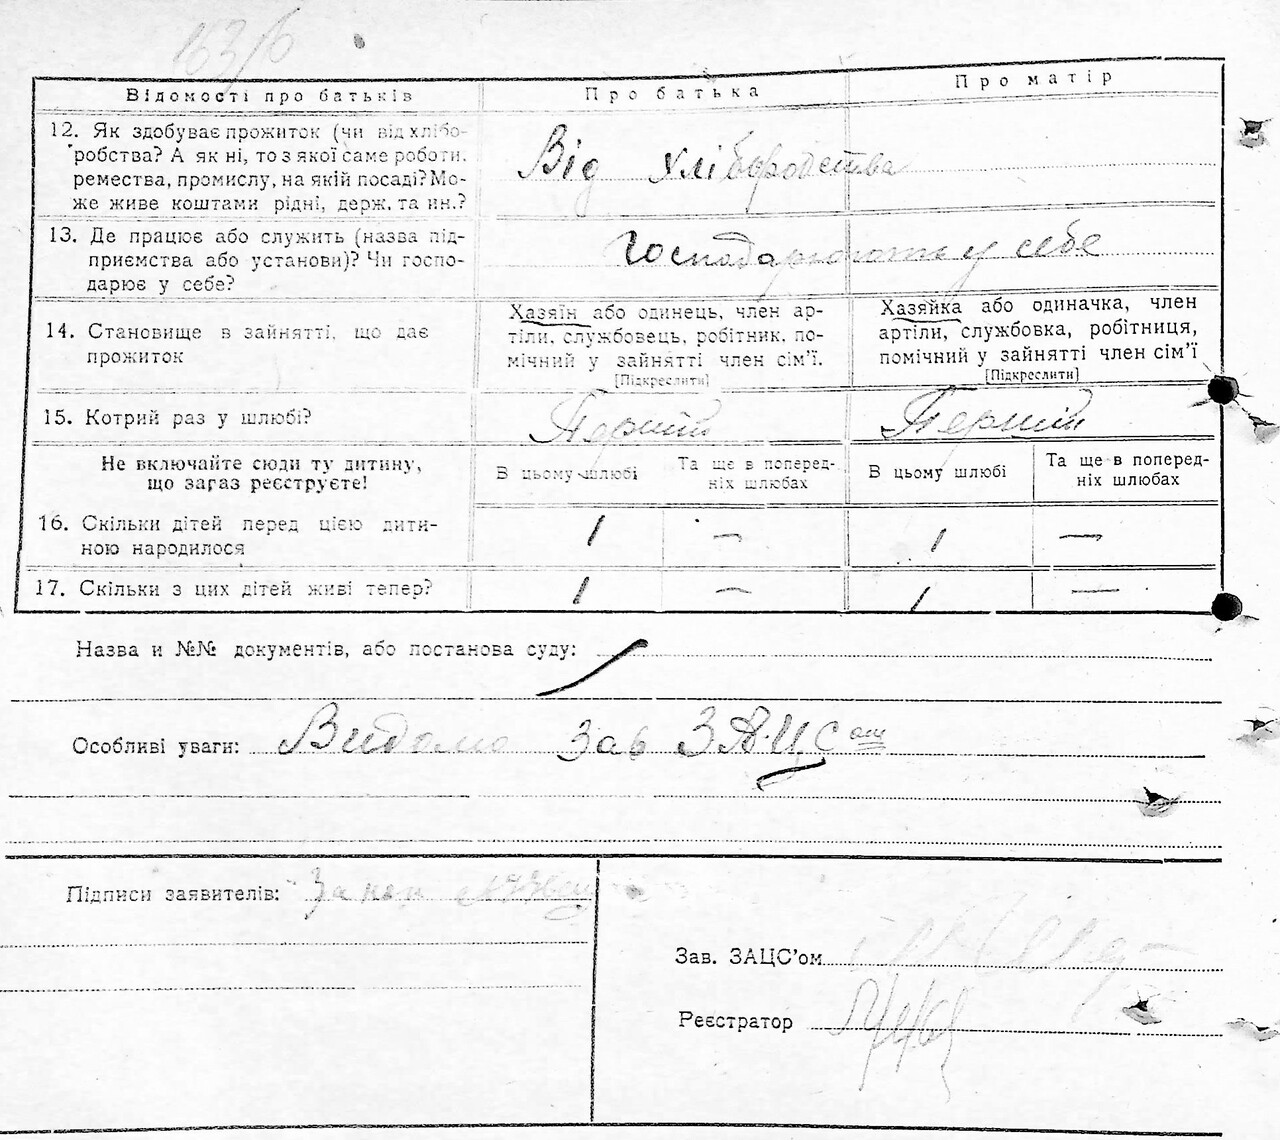 Відомості про батьків Про батька Про матір
12. Як здобуває прожиток (чи від хлібо-
робства? А як ні, то з якої саме роботи,
ремества, промислу, на якій посаді? Мо-
же живе коштами рідні, держ. та ин.?
Від хліборобства
13. Де працює або служить (назва під-
приємства або установи)? Чи госпо-
дарює у себе?
Господарюють у себе
14. Становище в зайнятті, що дає
прожиток
Хазяїн або одинець, член ар-
тіли, службовець, робітник, по-
мічний у зайнятті член сім'ї.
[Підкреслити]
Хазяйка або одиначка, член
артіли, службовка, робітниця,
помічний у зайнятті член сім'ї
[Підкреслити]
15. Котрий раз у шлюбі? Перший Перший
Не включайте сюди ту дитину,
що зараз реєструєте!
В цьому шлюбі
Та ще в поперед-
ніх шлюбах
В цьому шлюбі
Та ще в поперед-
ніх шлюбах
16. Скільки дітей перед цією дити-
ною народилося
1 — 1 —
17. Скільки з цих дітей живі тепер? 1 — 1 —
Назва и №№ документів, або постанова суду:
Особливі уваги: Видомо Зав ЗАЦСом
Підписи заявителів:
Зав. ЗАЦС'ом
Реєстратор